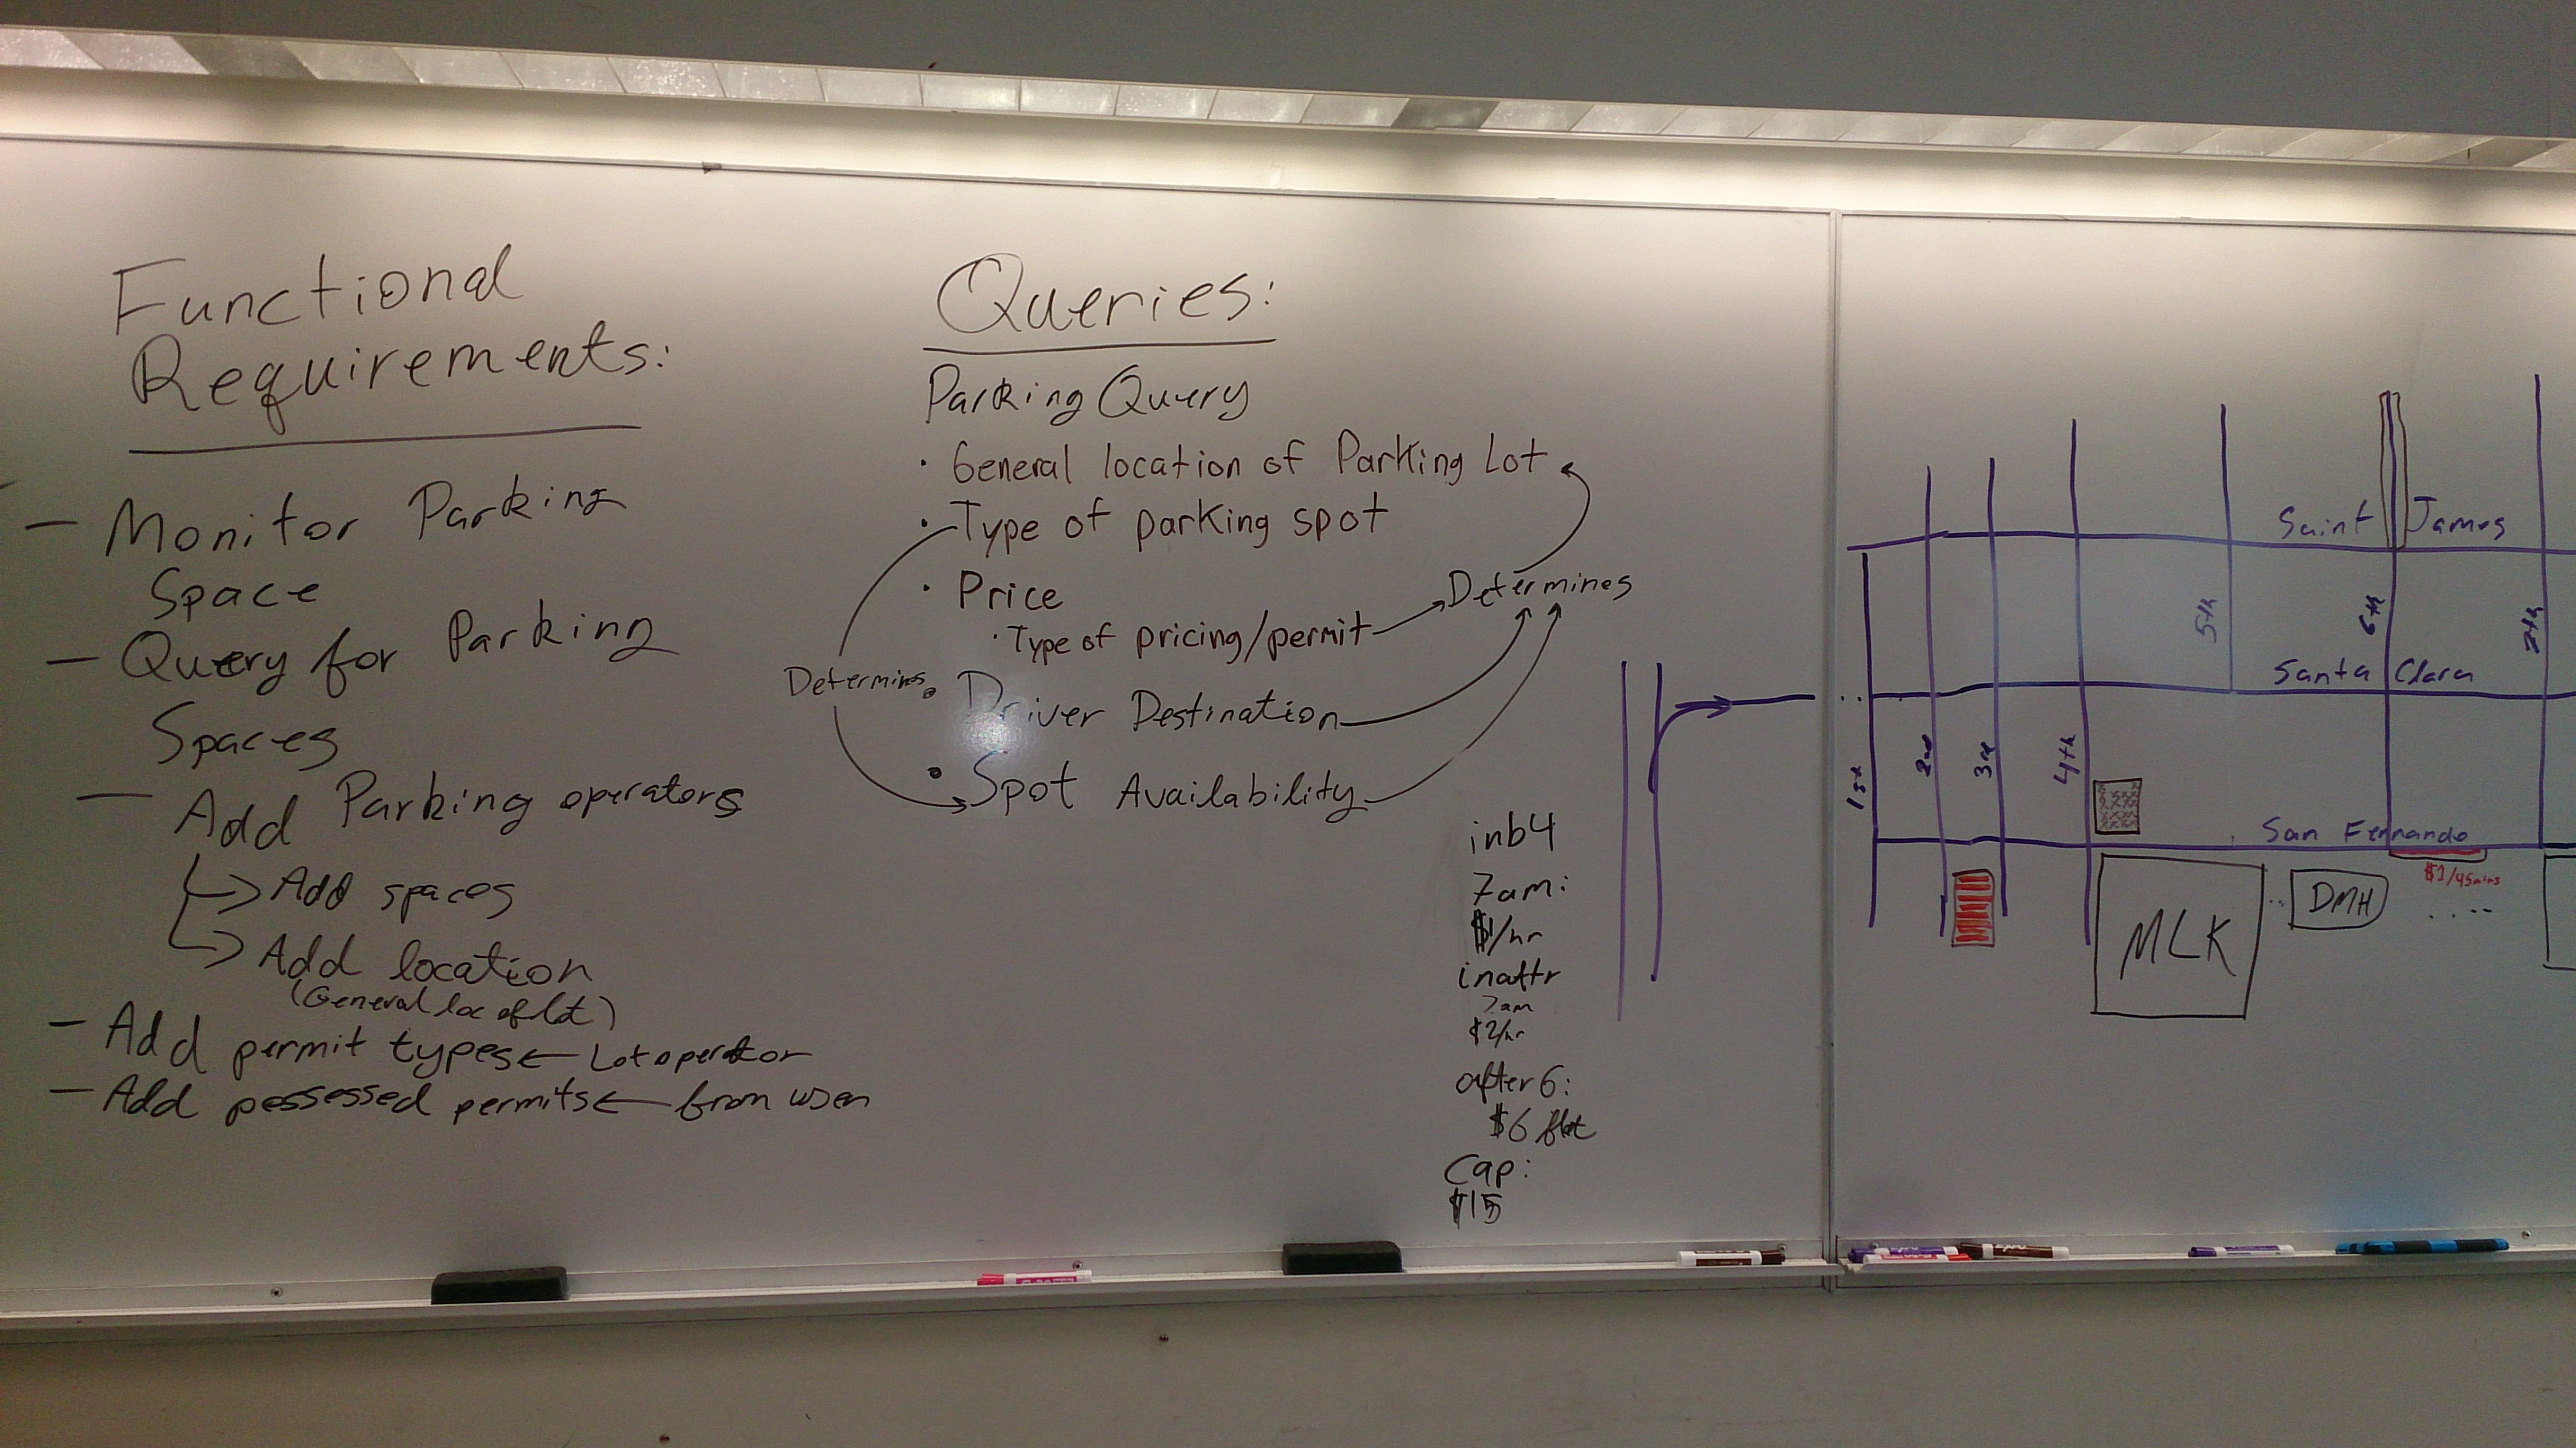 Functional
Requirements:
— Monitor Parking
Space
— Query for Parking
Spaces
— Add Parking operators
Add spaces
Add location
(General loc of lot)
— Add permit types ← Lot operator
— Add possessed permits ← from user
Queries:
Parking Query
· General location of Parking Lot
· Type of parking spot
· Price
· Type of pricing/permit → Determines
Determines
• Driver Destination
• Spot Availability
inb4
7am:
$1/hr
inaftr
7am
$2/hr
after 6:
$6 flat
Cap:
$15
Saint James
5th
6th
7th
Santa Clara
1st
2nd
3rd
4th
San Fernando
$1/45mins
MLK
DMH